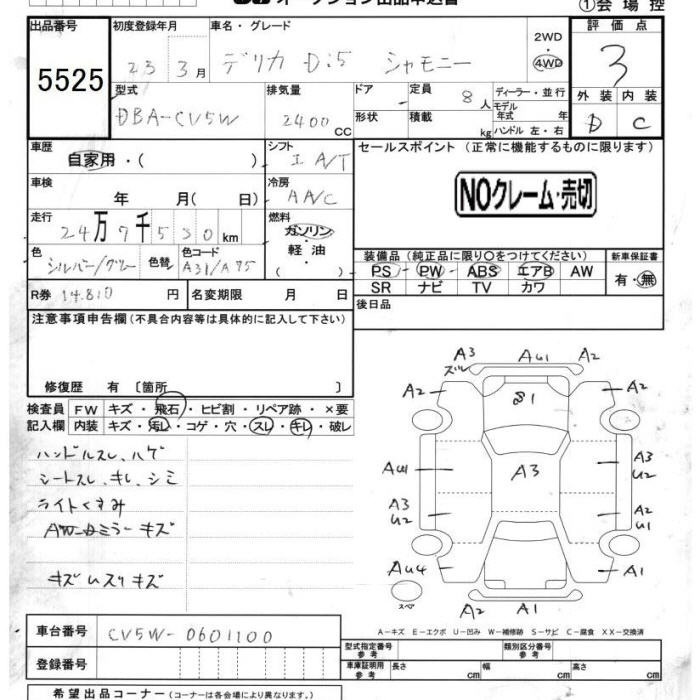 オークション出品申込書
①会場控
出品番号
5525
初度登録年月
23 3月
車名・グレード
デリカ D:5 シャモニー
2WD
4WD
評価点
3
外装 内装
D C
型式
DBA-CV5W
排気量
2400 CC
ドア
形状
定員 8 人
積載 kg
ディーラー・並行
モデル
年式 年
ハンドル 左・右
車歴
自家用・( )
シフト
I A/T
セールスポイント (正常に機能するものに限ります)
NOクレーム・売切
車検
年 月( 日)
冷房
AAC
走行
24万7千530km
燃料
ガソリン
軽・油
( )
色
シルバー/グレー
色替
色コード
A31/A75
装備品 (純正品に限り○をつけてください)
PS PW ABS エアB AW
SR ナビ TV カワ
新車保証書
有・無
R券 14.810 円
名変期限 月 日
後日品
注意事項申告欄(不具合内容等は具体的に記入して下さい)
修復歴 有 〔箇所 〕
検査員
記入欄
FW キズ・飛石・ヒビ割・リペア跡・×要
内装 キズ・汚レ・コゲ・穴・スレ・キレ・破レ
ハンドルスレ、ハゲ
シートスレ、キレ、シミ
ライトくすみ
ミラーキズ
キズ ムスリキズ
A3
ズレ
AU1
A2
A2
S1
A2
AU1
A3
A3
U2
A3
U2
A2
U1
AU4
A1
スペア
A2
A1
A-キズ E-エクボ U-凹み W-補修跡 S-サビ C-腐食 XX-交換済
車台番号
CV5W-0601100
登録番号
型式指定番号
参考
類別区分番号
参考
車庫証明用
参考
長さ cm
幅 cm
高さ cm
希望出品コーナー(コーナーは各会場により異なります。)